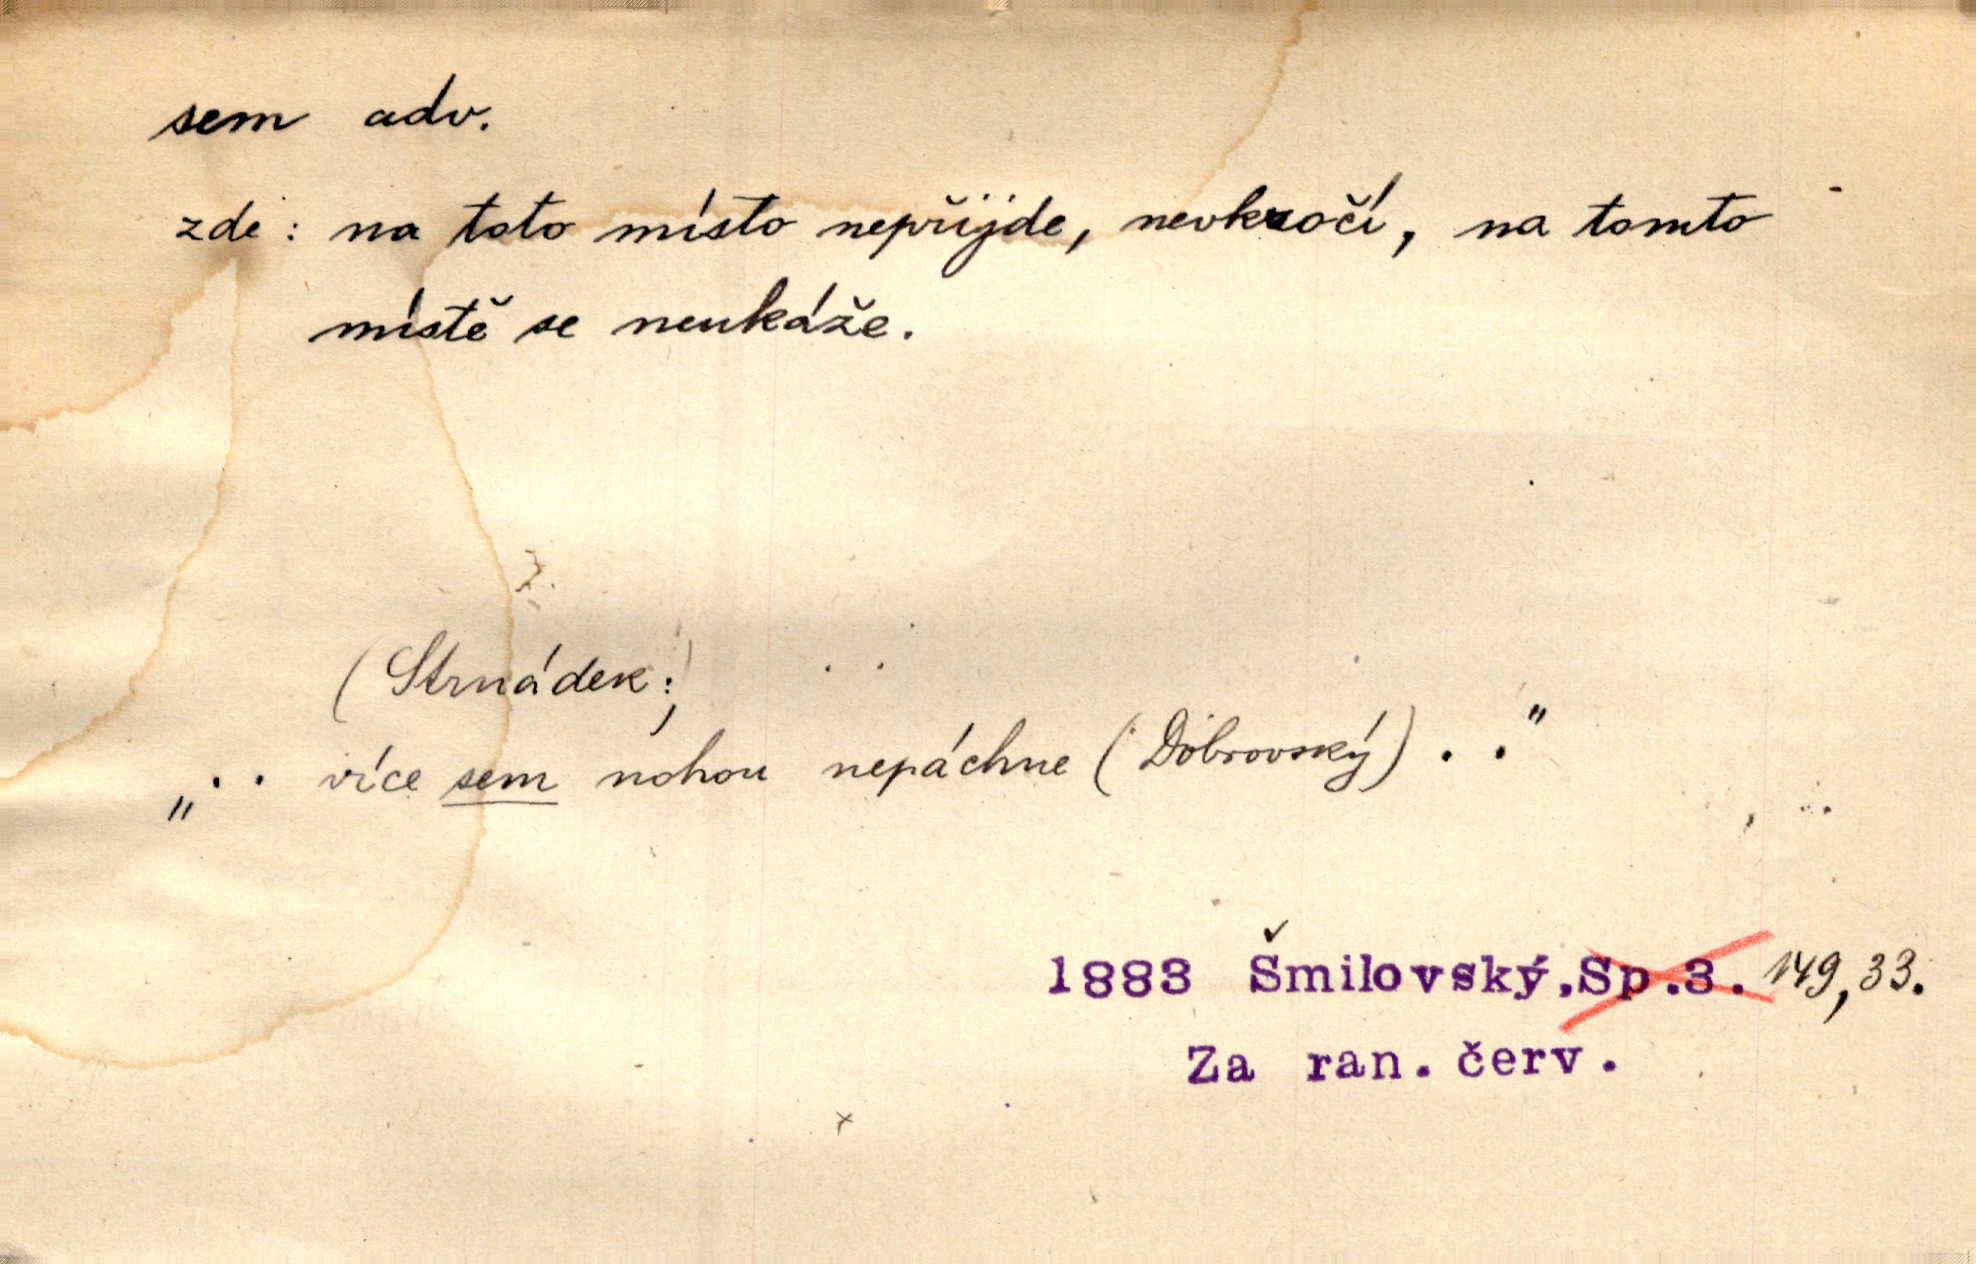 sem adv.
zde: na toto místo nepřijde, nevkročí, na tomto
místě se neukáže.
(Strnádek:)
„.. více sem nohou nepáchne (Dobrovský) . ."
1883 Šmilovský, Sp.3. 149,33.
Za ran. červ.